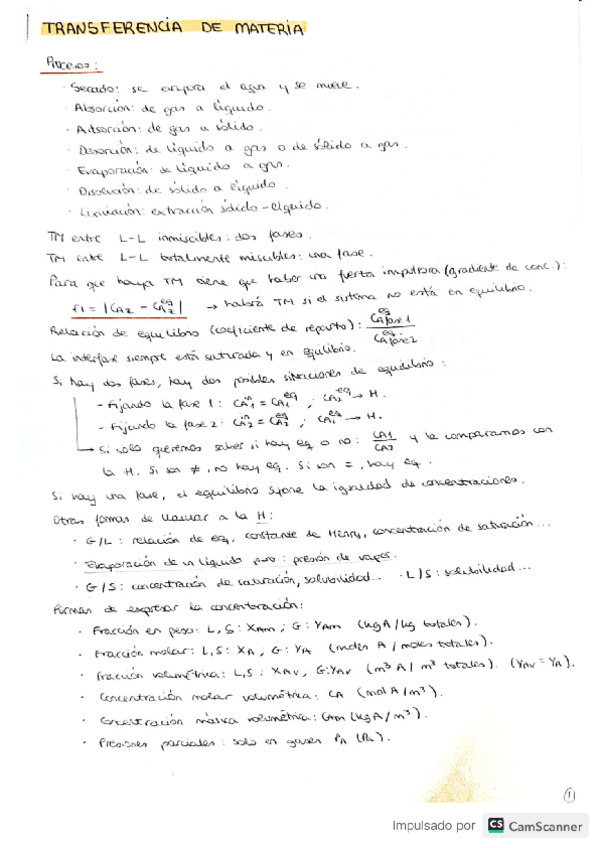 TRANSFERENCIA DE MATERIA
Procesos:
· Secado: se evapora el agua y se mueve.
· Absorción: de gas a líquido.
· Adsorción: de gas a sólido.
· Desorción: de líquido a gas o de sólido a gas.
· Evaporación: de líquido a gas.
· Disolución: de sólido a líquido.
· Lixiviación: extracción sólido-líquido.
TM entre L-L inmiscibles: dos fases.
TM entre L-L totalmente miscibles: una fase.
Para que haya TM tiene que haber una fuerza impulsora (gradiente de conc.):
f1 = |CA2 - CA2^eq| → habrá TM si el sistema no está en equilibrio.
Relación de equilibrio (coeficiente de reparto): CA^eq fase1 / CA^eq fase2
La interfase siempre está saturada y en equilibrio.
Si hay dos fases, hay dos posibles situaciones de equilibrio:
- Fijando la fase 1: CA1^in = CA1^eq ; CA2^eq → H.
- Fijando la fase 2: CA2^in = CA2^eq ; CA1^eq → H.
→ Si solo queremos saber si hay eq o no: CA1/CA2 y la comparamos con
la H. Si son ≠, no hay eq. Si son =, hay eq.
Si hay una fase, el equilibrio supone la igualdad de concentraciones.
Otras formas de llamar a la H:
· G/L: relación de eq, constante de Henry, concentración de saturación...
· Evaporación de un líquido puro: presión de vapor.
· G/S: concentración de saturación, solubilidad... · L/S: solubilidad...
Formas de expresar la concentración:
· Fracción en peso: L, S: XAm ; G: YAm (kgA/kg totales).
· Fracción molar: L, S: XA ; G: YA (moles A / moles totales).
· Fracción volumétrica: L, S: XAV, G: YAV (m³ A / m³ totales). (YAV = YA).
· Concentración molar volumétrica: CA (mol A / m³).
· Concentración másica volumétrica: CAm (kgA/m³).
· Presiones parciales: solo en gases PA (Pa).
1
Impulsado por CS CamScanner